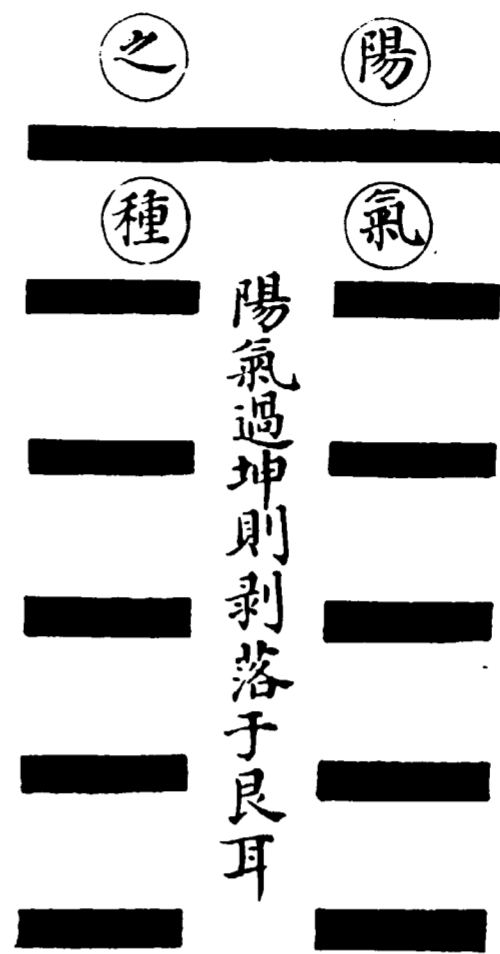 陽氣
之種
陽氣過坤則剥落于艮耳